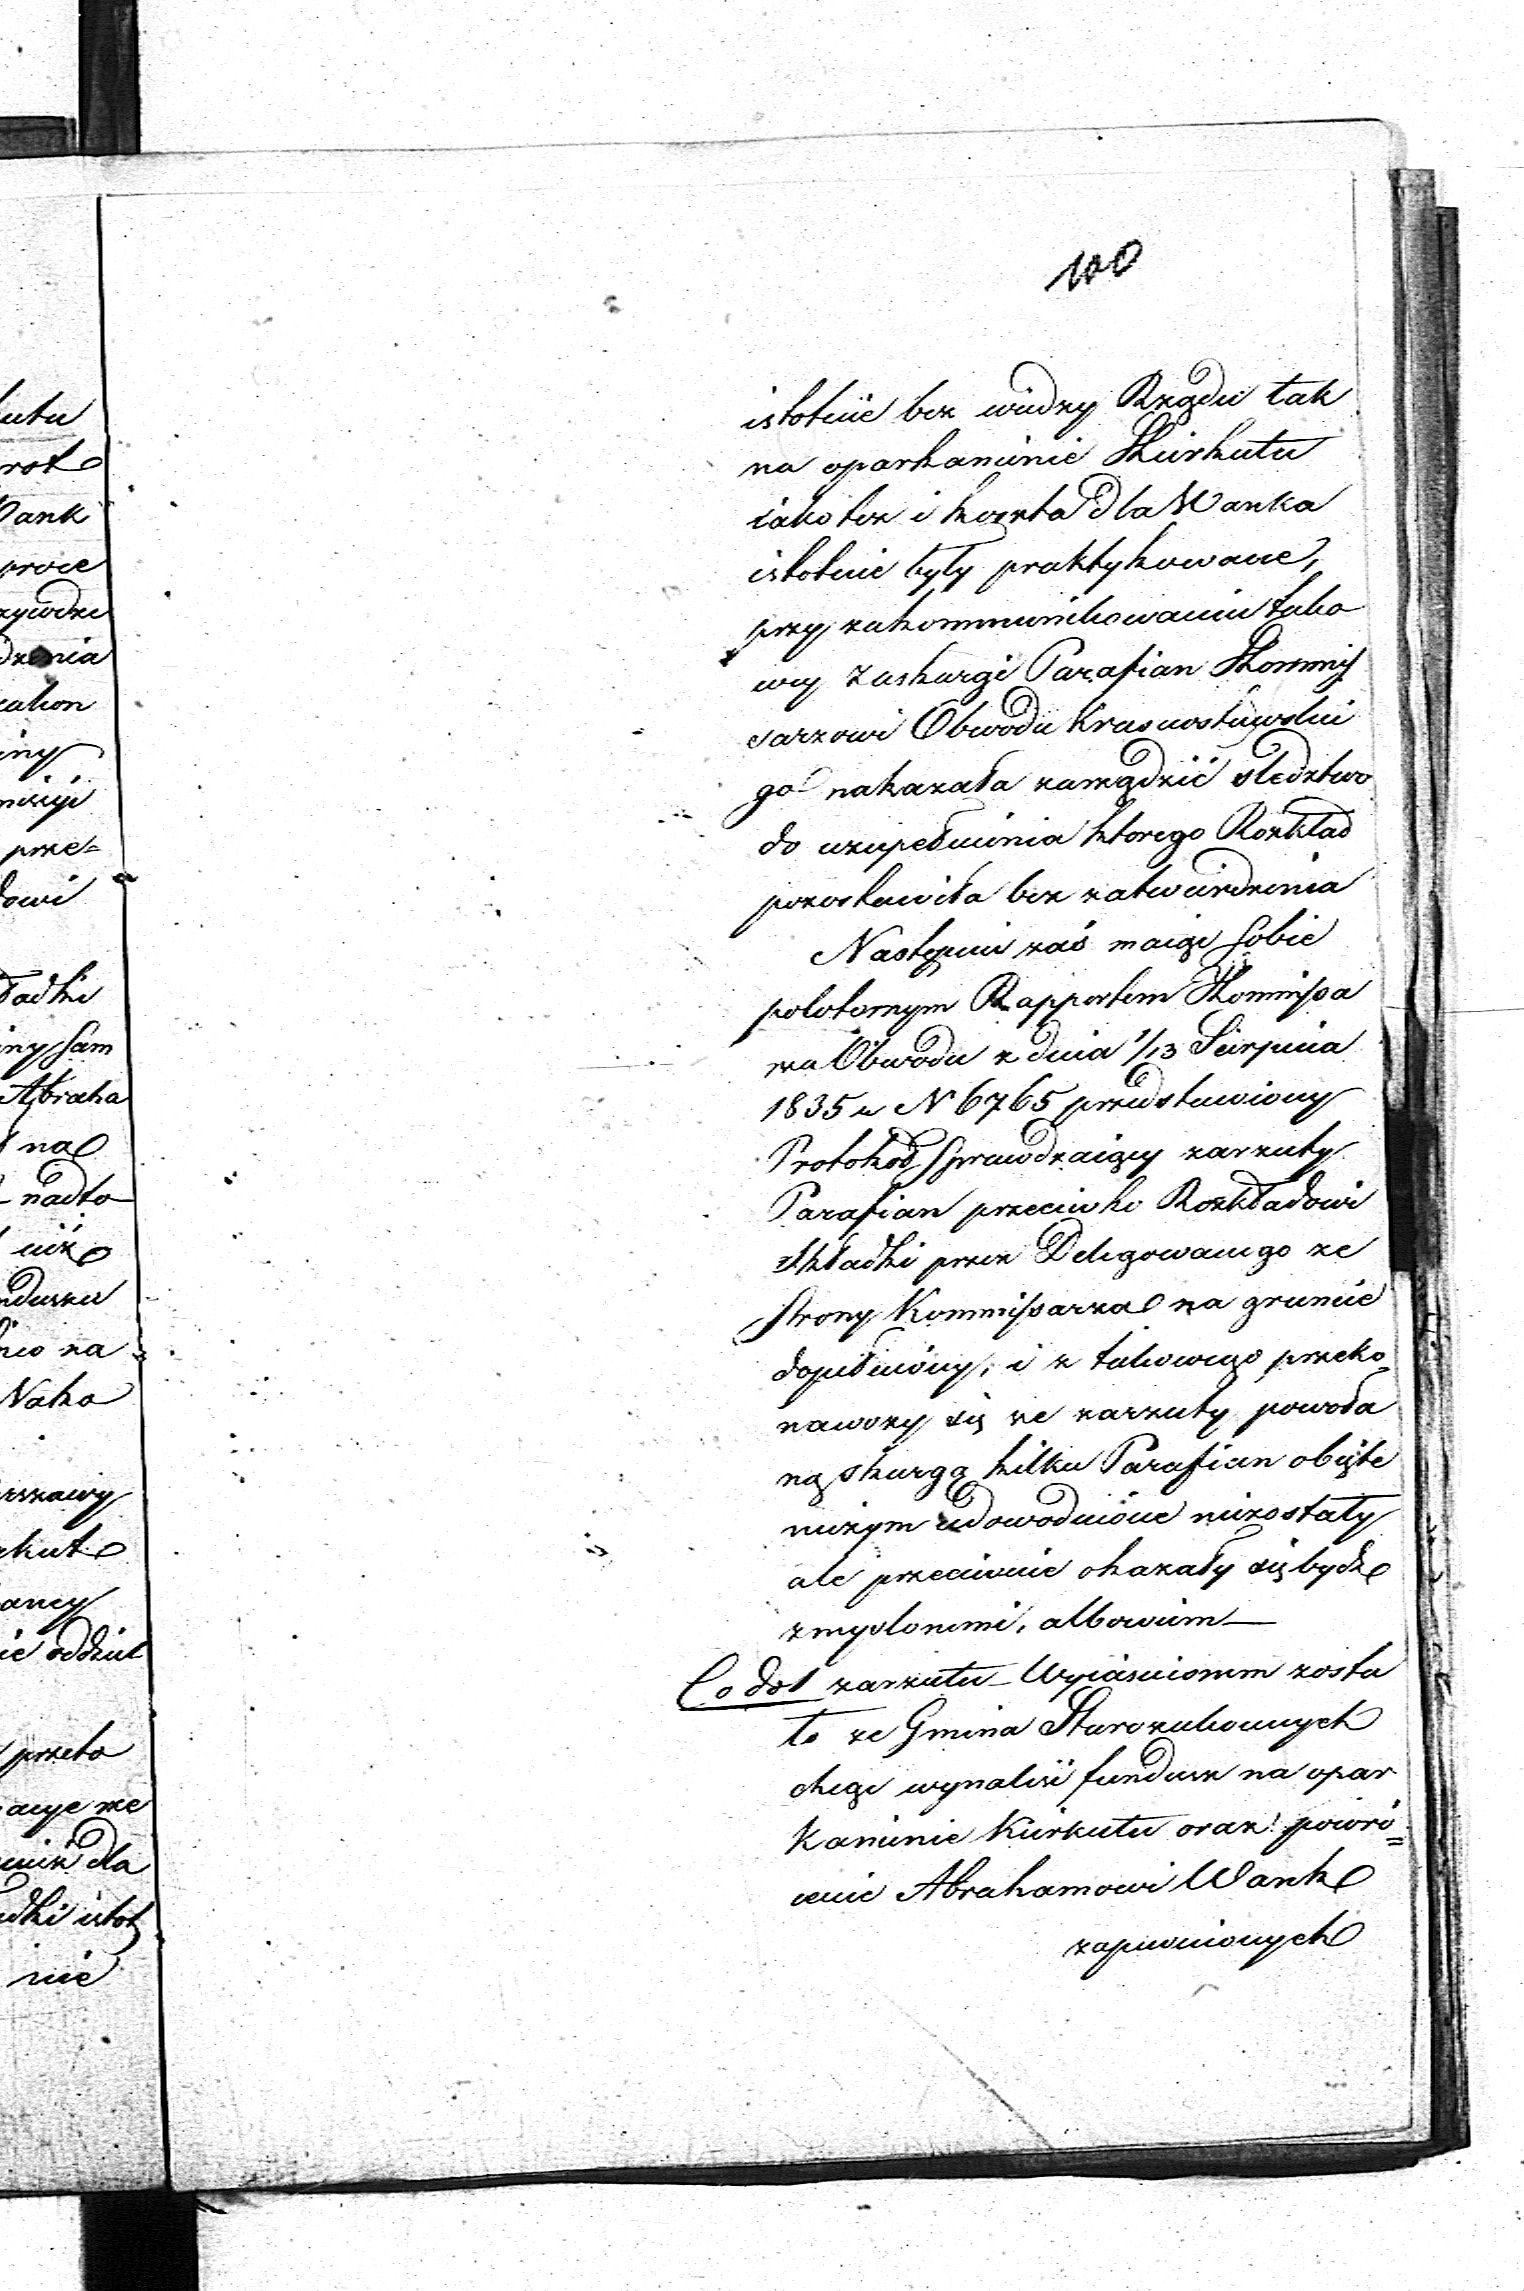 100
istotnie bez wiedzy Rządu tak
na oparkanienie Kirkutu
iako też i koszta dla Wanka
istotnie były praktykowane,
przy zakommunikowaniu tako
wey zaskargi Parafian Kommis
sarzowi Obwodu Krasnostawskie
go nakazała zarządzić śledztwo
do uzupełnienia ktorego Rozkład
pozostawiła bez zatwierdzenia
Następnie zaś maiąc sobie
polotornym Rapportem Kommissa
rza Obwodu z dnia 1/13 Sierpnia
1835 r N 6765 przedstawiony
Protokoł sprawdzaiący zarzuty
Parafian przeciwko Rozkładowi
składki przez Delegowanego ze
strony Kommissarza na gruncie
dopełniony, i z takowego przeko
nawszy się że zarzuty powoła
ną skargą kilku Parafian obięte
niczym udowodnione niezostały
ale przeciwnie okazały się bydź
zmyslonemi, albowiem
Co do 1 zarzutu Wyiasnionem zosta
ło że Gmina Starozakonnych
chcąc wynaliść fundusz na opar
kanienie Kirkutu oraz powró=
cenie Abrahamowi Wank
zapewnionych
utu
rot
Wank
procie
zywdze
dzenia
kahon
iny
prze=
dowi
ładki
iny sam
Abraha
na
nadto
niż
nduszu
na
Nako
rszawy
rkut
ancy
ie oddziel
przeto
acye że
dla
adki istot
nie